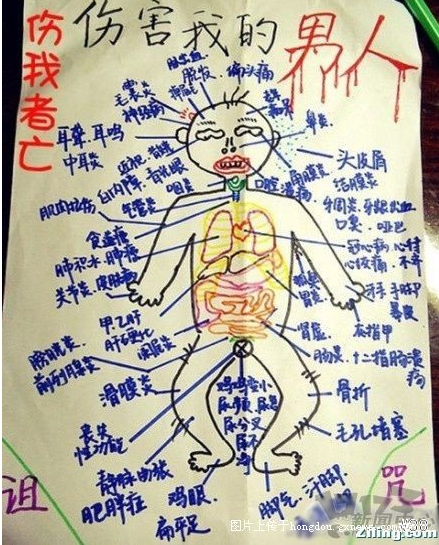 伤害我的男人
伤我者亡
脑出血
脱发
偏头痛
毛囊炎
神经病
鼻炎
耳聋.耳鸣
中耳炎
近视.散光
白内障.青光眼
咽炎
头皮屑
角膜炎
结膜炎
口腔溃疡
牙周炎.牙龈出血
口臭.哑巴
肌肉拉伤
气管炎
食道癌
肺积水.肺癌
关节炎
冠心病.心梗
心绞痛.不齐
狐臭
胃炎
灰指甲
甲乙肝
肝硬化
膀胱炎
前列腺炎
阑尾炎
肾虚
肠炎.十二指肠溃疡
滑膜炎
鸡鸡变小
尿频.尿急
尿分叉
尿不净
骨折
丧失
性功能
毛孔堵塞
静脉曲张
肥胖症
鸡眼
扁平足
脚气.汗脚
诅
咒
图片上传于hongdou.gxnews.com.cn
Zjing.com